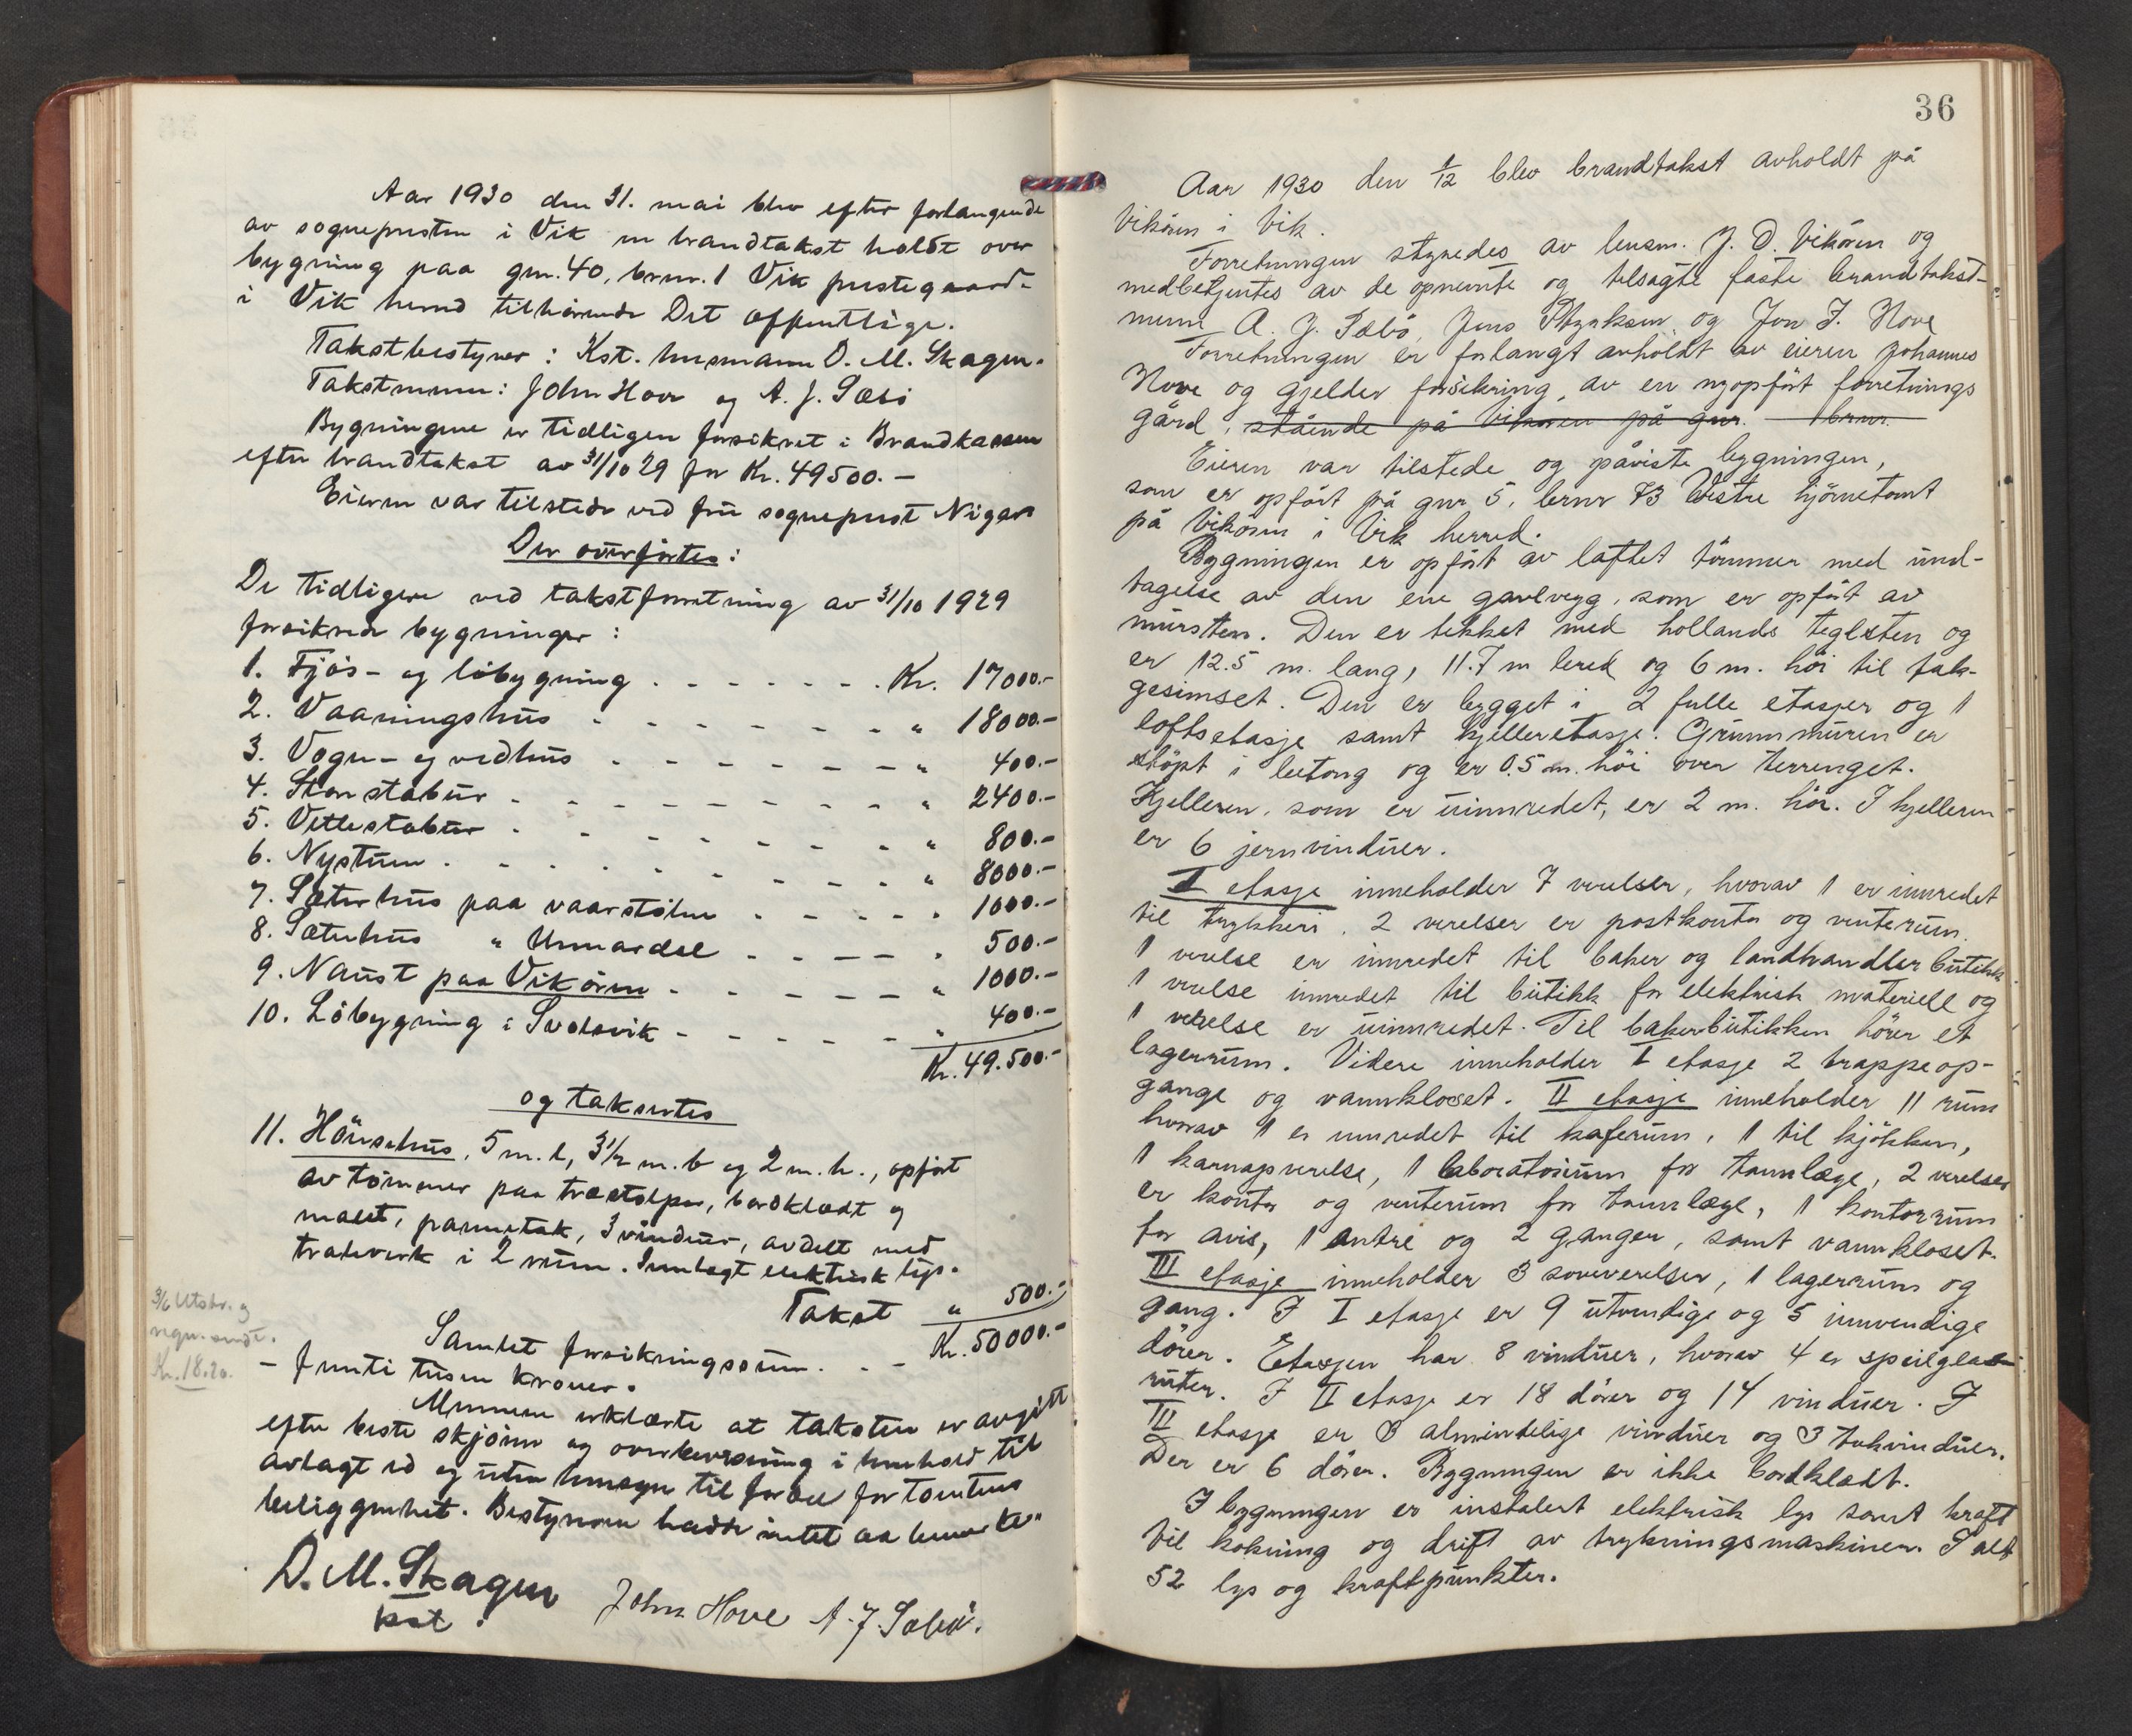 Aar 1930 den 31. mai blev efter forlangende
av sognepresten i Vik en brandtakst holdt over
bygning paa gnr. 40, brnr. 1 Vik prestegaard
i Vik herred tilhørende Det offentlige.
Takstbestyrer: Kst. lensmann O. M. Skagen.
Takstmenn: John Hove og A. J. Sæbö
Bygningene er tidligere forsikret i Brandkassen
efter brandtakst av 31/10 29 for Kr. 49500.-
Eieren var tilstede ved fru sogneprest Nigar
Der överförtes:
De tidligere ved takstforretning av 31/10 1929
forsikrede bygninger:
1. Fjös- og löbygning . . . . . . . Kr. 17000.-
2. Vaaningshus - - - - - - - " 18000.-
3. Vogn- og vedhus - - - - - - " 400.-
4. Storstabur - - - - - - - - " 2400.-
5. Vetlestabur - - - - - - - - " 800.-
6. Nystuen - - - - - - - - " 8000.-
7. Sæterhus paa vaarstölen - - - - . 1000.-
8. Sæterhus " Ummardal - - - - . 500.-
9. Naust paa Vikören - - - - - " 1000.-
10. Löbygning i Svolsvik - - - - - " 400.-
Kr. 49.500.-
og taksertes
11. Hönsehus, 5 m. l, 3 1/2 m. b og 2 m. h., opfört
av tömmer paa træstolper, bordklædt og
malet, pannetak, 3 vinduer, avdelt med
traleverk i 2 rum. Innlagt elektrisk lys.
Takst " 500.-
Samlet forsikringssum. . - Kr. 50000.-
- femti tusen kroner.
3/6 Utskr. og
regn. sendt.
Kr. 18.20.
Mennene erklærte at taksten er avgitt
efter beste skjönn og overbevisning i henhold til
avlagt ed og uten hensyn til fordel for tomtens
beliggenhet. Bestyreren hadde intet aa bemerke.
O. M. Skagen
kst.
John Hove A. J. Sæbö.
36
Aar 1930 den 1/12 blev brandtakst avholdt på
Vikören i Vik.
Forretningen styredes av lensm. J. O. Vikören og
medbetjentes av de opnevnte og tilsagte faste brandtakst-
menn A. J. Sæbö, Jens Styrksen og Jon J. Hove
Forretningen er forlangt avholdt av eieren Johannes
Hove og gjelder forsikring av en nyopfört forretnings
gård, stående på Vikören på gnr. — brnr.
Eieren var tilstede og påviste bygningen,
som er opfört på gnr 5, brnr 73 Vestre hjörnetomt
på Vikören i Vik herred.
Bygningen er opfört av laftet tömmer med und-
tagelse av den ene gavlvegg, som er opfört av
mursten. Den er tekket med hollandsk teglsten og
er 12.5 m. lang, 11.7 m bred og 6 m. höi til tak-
gesimset. Den er bygget i 2 fulle etasjer og 1
loftsetasje samt kjelleretasje. Grunnmuren er
stöpt i betong og er 0.5 m. höi over terrenget.
Kjelleren, som er uinnredet, er 2 m. höi. I kjelleren
er 6 jernvinduer.
I etasje inneholder 7 værelser, hvorav 1 er innredet
til trykkeri, 2 værelser er postkontor og venterum.
1 værelse er innredet til baker og landhandler butikk
1 værelse innredet til butikk for elektrisk materiell og
1 værelse er uinnredet. Til bakerbutikken hörer et
lagerrum. Videre inneholder I etasje 2 trappeop-
gange og vannkloset. II etasje inneholder 11 rum
hvorav 1 er innredet til kaferum, 1 til kjökken,
1 karnapværelse, 1 laboratorium for tannlæge, 2 værelser
er kontor og venterum for tannlæge, 1 kontorrum
for avis, 1 entre og 2 ganger, samt vannkloset.
III etasje inneholder 3 soveværelser, 1 lagerrum og
gang. I I etasje er 9 utvendige og 5 innvendige
dörer. Etasjen har 8 vinduer, hvorav 4 er speilglass
ruter. I II etasje er 18 dörer og 14 vinduer. I
III etasje er 3 almindelige vinduer og 3 takvinduer.
Der er 6 dörer. Bygningen er ikke bordklædt.
I bygningen er installert elektrisk lys samt kraft
til kokning og drift av trykningsmaskiner. I alt
52 lys og kraftpunkter.